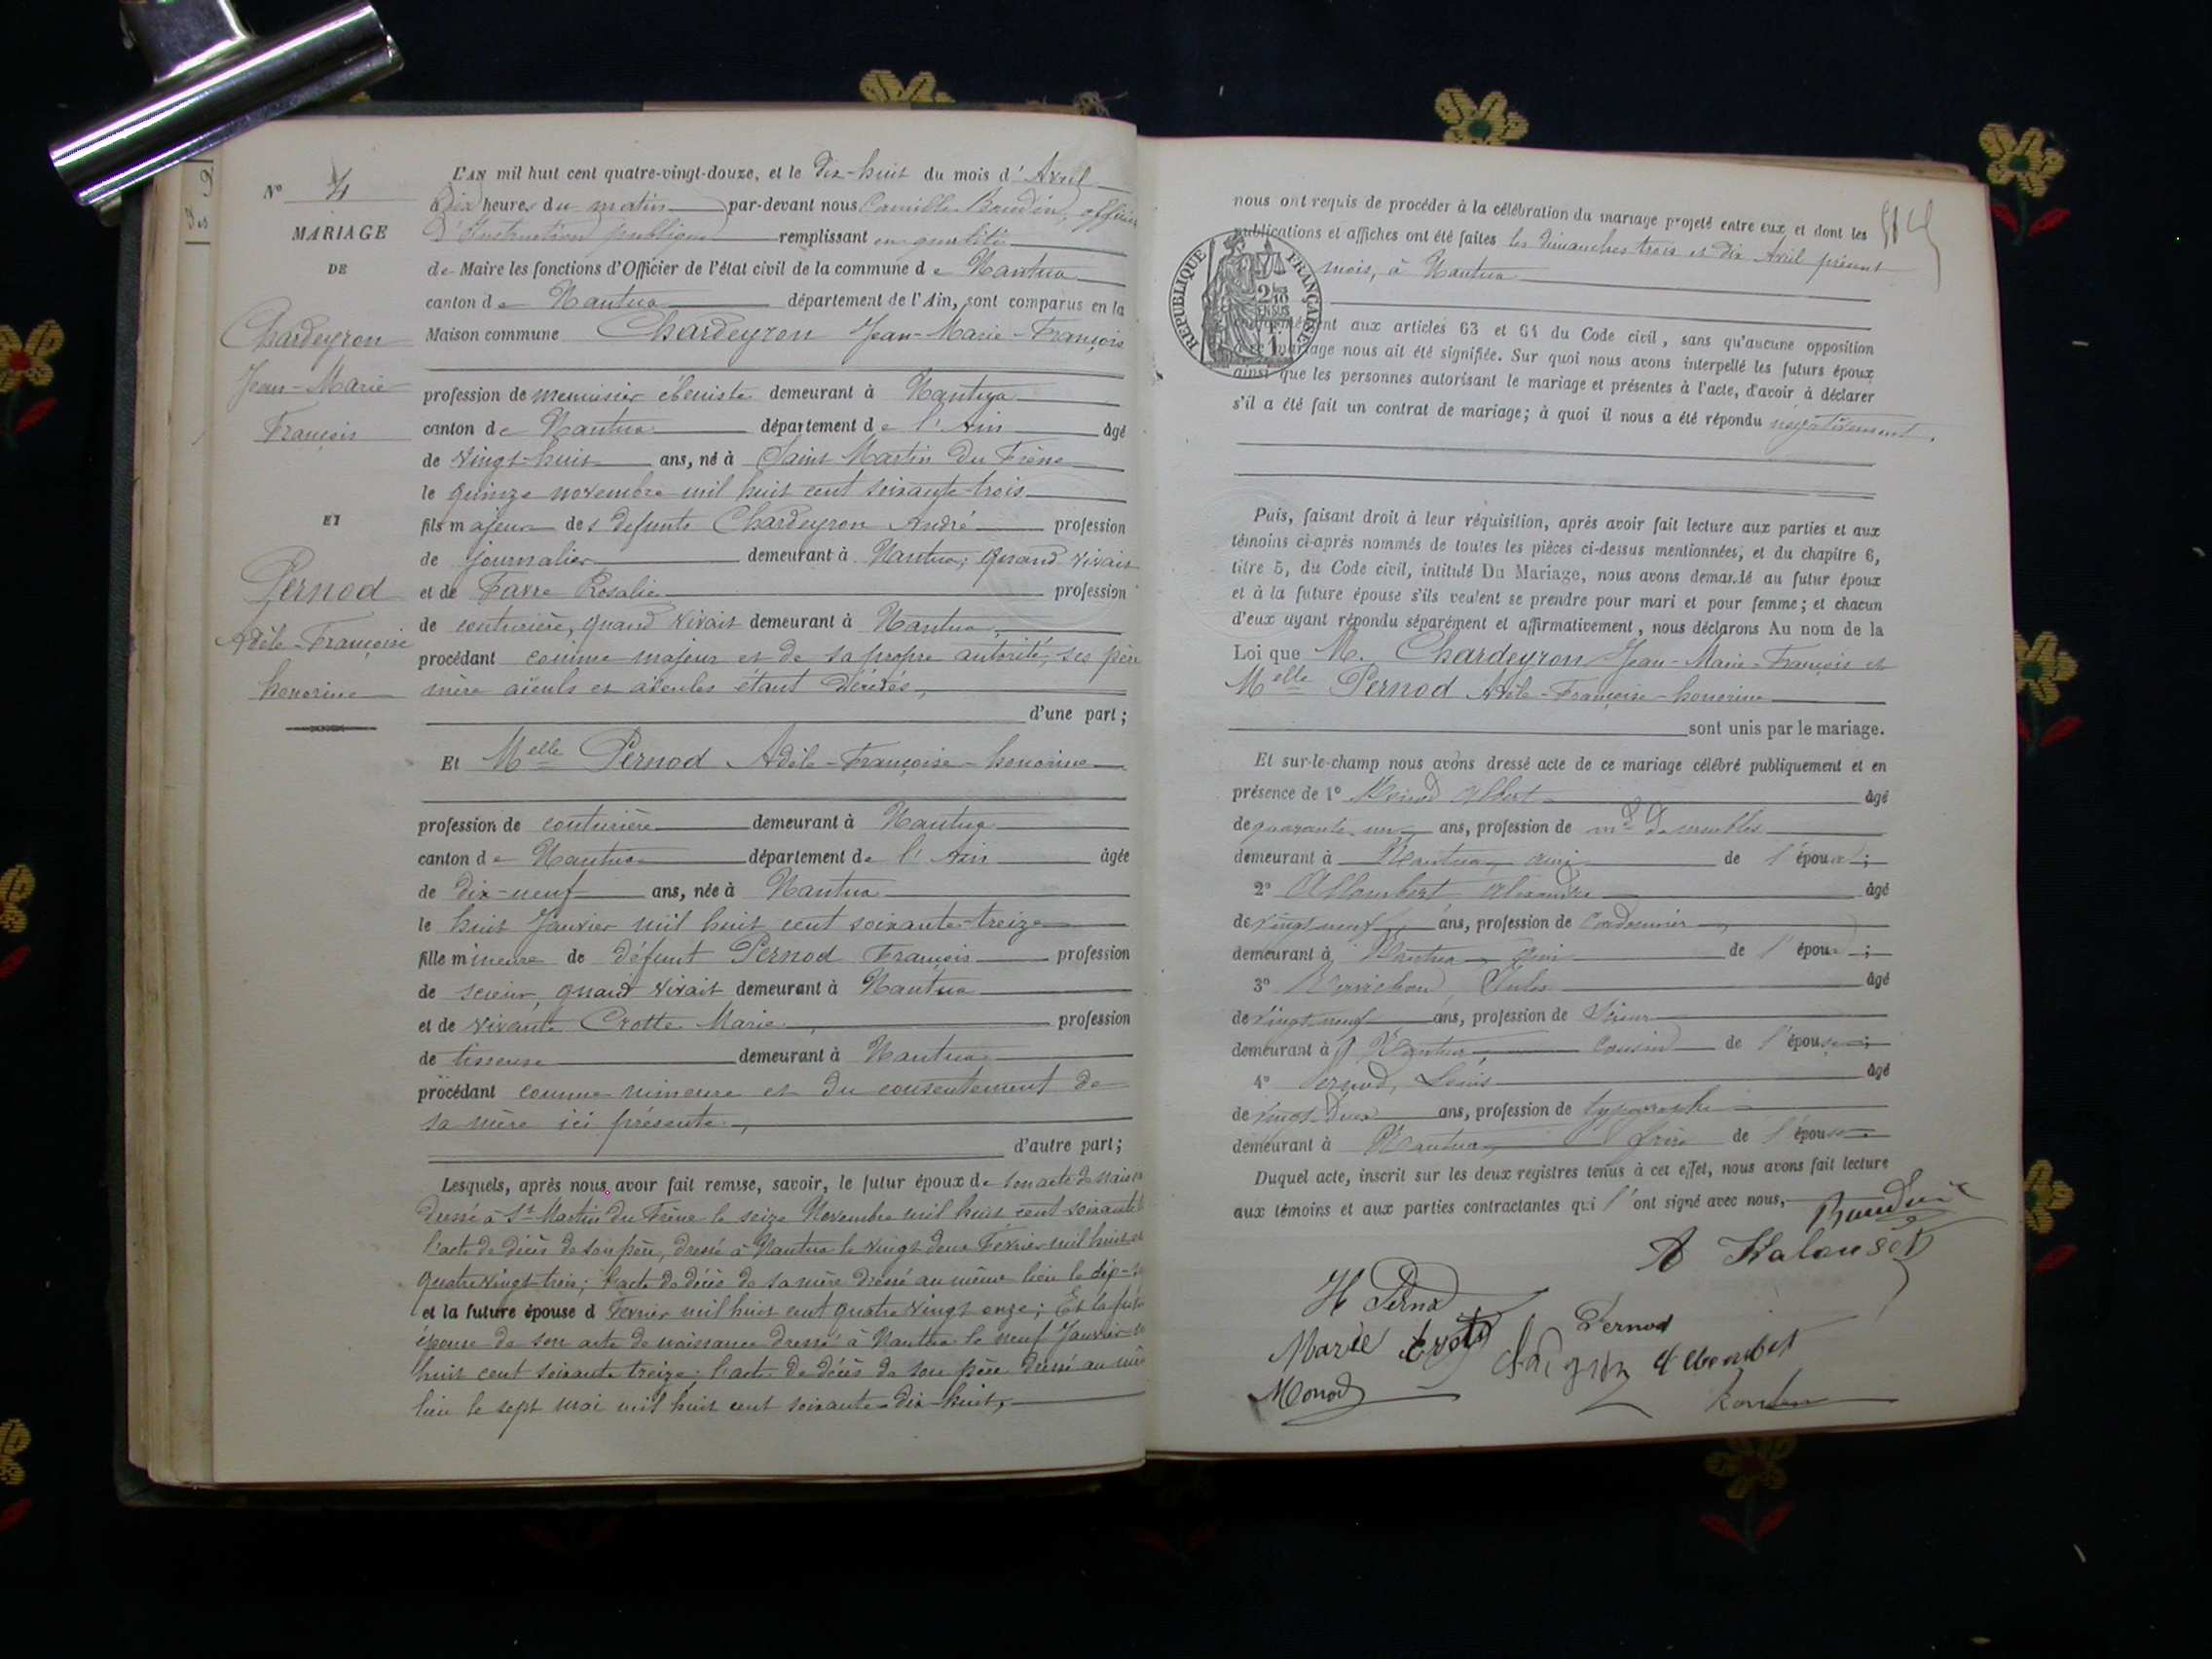 N° 4
MARIAGE
DE
Chardeyron
Jean-Marie
François
ET
Pernod
Adèle-Françoise
honorine
L'AN mil huit cent quatre-vingt-douze, et le dix-huit du mois d'Avril
à Dix heures du matin par-devant nous Camille Baudin, officier
d'Instruction publique remplissant en qualité
de Maire les fonctions d'Officier de l'état civil de la commune de Nantua
canton de Nantua département de l'Ain, sont comparus en la
Maison commune Chardeyron Jean-Marie-François
profession de menuisier ébéniste demeurant à Nantua
canton de Nantua département de l'Ain âgé
de vingt-huit ans, né à Saint Martin du Frêne
le quinze novembre mil huit cent soixante-trois
fils majeur des defunts Chardeyron André profession
de journalier demeurant à Nantua, quand vivait
et de Favre Rosalie profession
de couturière, quand vivait demeurant à Nantua,
procédant comme majeur et de sa propre autorité, ses père
mère aïeuls et aïeules étant décédés,
d'une part;
Et Melle Pernod Adèle-Françoise-honorine
profession de couturière demeurant à Nantua
canton de Nantua département de l'Ain âgée
de dix-neuf ans, née à Nantua
le huit Janvier mil huit cent soixante-treize
fille mineure de défunt Pernod François profession
de scieur, quand vivait demeurant à Nantua
et de vivante Crotte Marie, profession
de tisseuse demeurant à Nantua
procédant comme mineure et du consentement de
sa mère ici présente,
d'autre part;
Lesquels, après nous avoir fait remise, savoir, le futur époux de son acte de naiss
dressé à St Martin du Frêne le seize Novembre mil huit cent soixante
l'acte de décès de son père, dressé à Nantua le vingt deux Février mil huit
quatre vingt-trois; l'acte de décès de sa mère dressé au même lieu le
et la future épouse d Février mil huit cent quatre vingt onze; Et la
épouse de son acte de naissance dressé à Nantua le neuf Janvier
huit cent soixante treize; l'acte de décès de son père dressé au
lieu le sept mai mil huit cent soixante-dix-huit,
nous ont requis de procéder à la célébration du mariage projeté entre eux et dont les
publications et affiches ont été faites les dimanches trois et dix Avril présent
mois, à Nantua
RÉPUBLIQUE FRANÇAISE
aux articles 63 et 64 du Code civil, sans qu'aucune opposition
mariage nous ait été signifiée. Sur quoi nous avons interpellé les futurs époux
ainsi que les personnes autorisant le mariage et présentes à l'acte, d'avoir à déclarer
s'il a été fait un contrat de mariage; à quoi il nous a été répondu négativement.
Puis, faisant droit à leur réquisition, après avoir fait lecture aux parties et aux
témoins ci-après nommés de toutes les pièces ci-dessus mentionnées, et du chapitre 6,
titre 5, du Code civil, intitulé Du Mariage, nous avons demandé au futur époux
et à la future épouse s'ils veulent se prendre pour mari et pour femme; et chacun
d'eux ayant répondu séparément et affirmativement, nous déclarons Au nom de la
Loi que M. Chardeyron Jean-Marie-François et
Melle Pernod Adèle-Françoise-honorine
sont unis par le mariage.
Et sur-le-champ nous avons dressé acte de ce mariage célébré publiquement et en
présence de 1° Albert âgé
de quarante-un ans, profession de md de meubles
demeurant à Nantua, ami de l'époux;
2° Allombert Alexandre âgé
de vingt neuf ans, profession de Cordonnier
demeurant à Nantua, ami de l'époux;
3° Jules âgé
de vingt-neuf ans, profession de
demeurant à Nantua, Cousin de l'épouse;
4° Pernod, Louis âgé
de vingt-deux ans, profession de typographe
demeurant à Nantua, frère de l'épouse
Duquel acte, inscrit sur les deux registres tenus à cet effet, nous avons fait lecture
aux témoins et aux parties contractantes qui l'ont signé avec nous,
Baudin
H Pernod
Pernod
Marie
Allombert
Monod